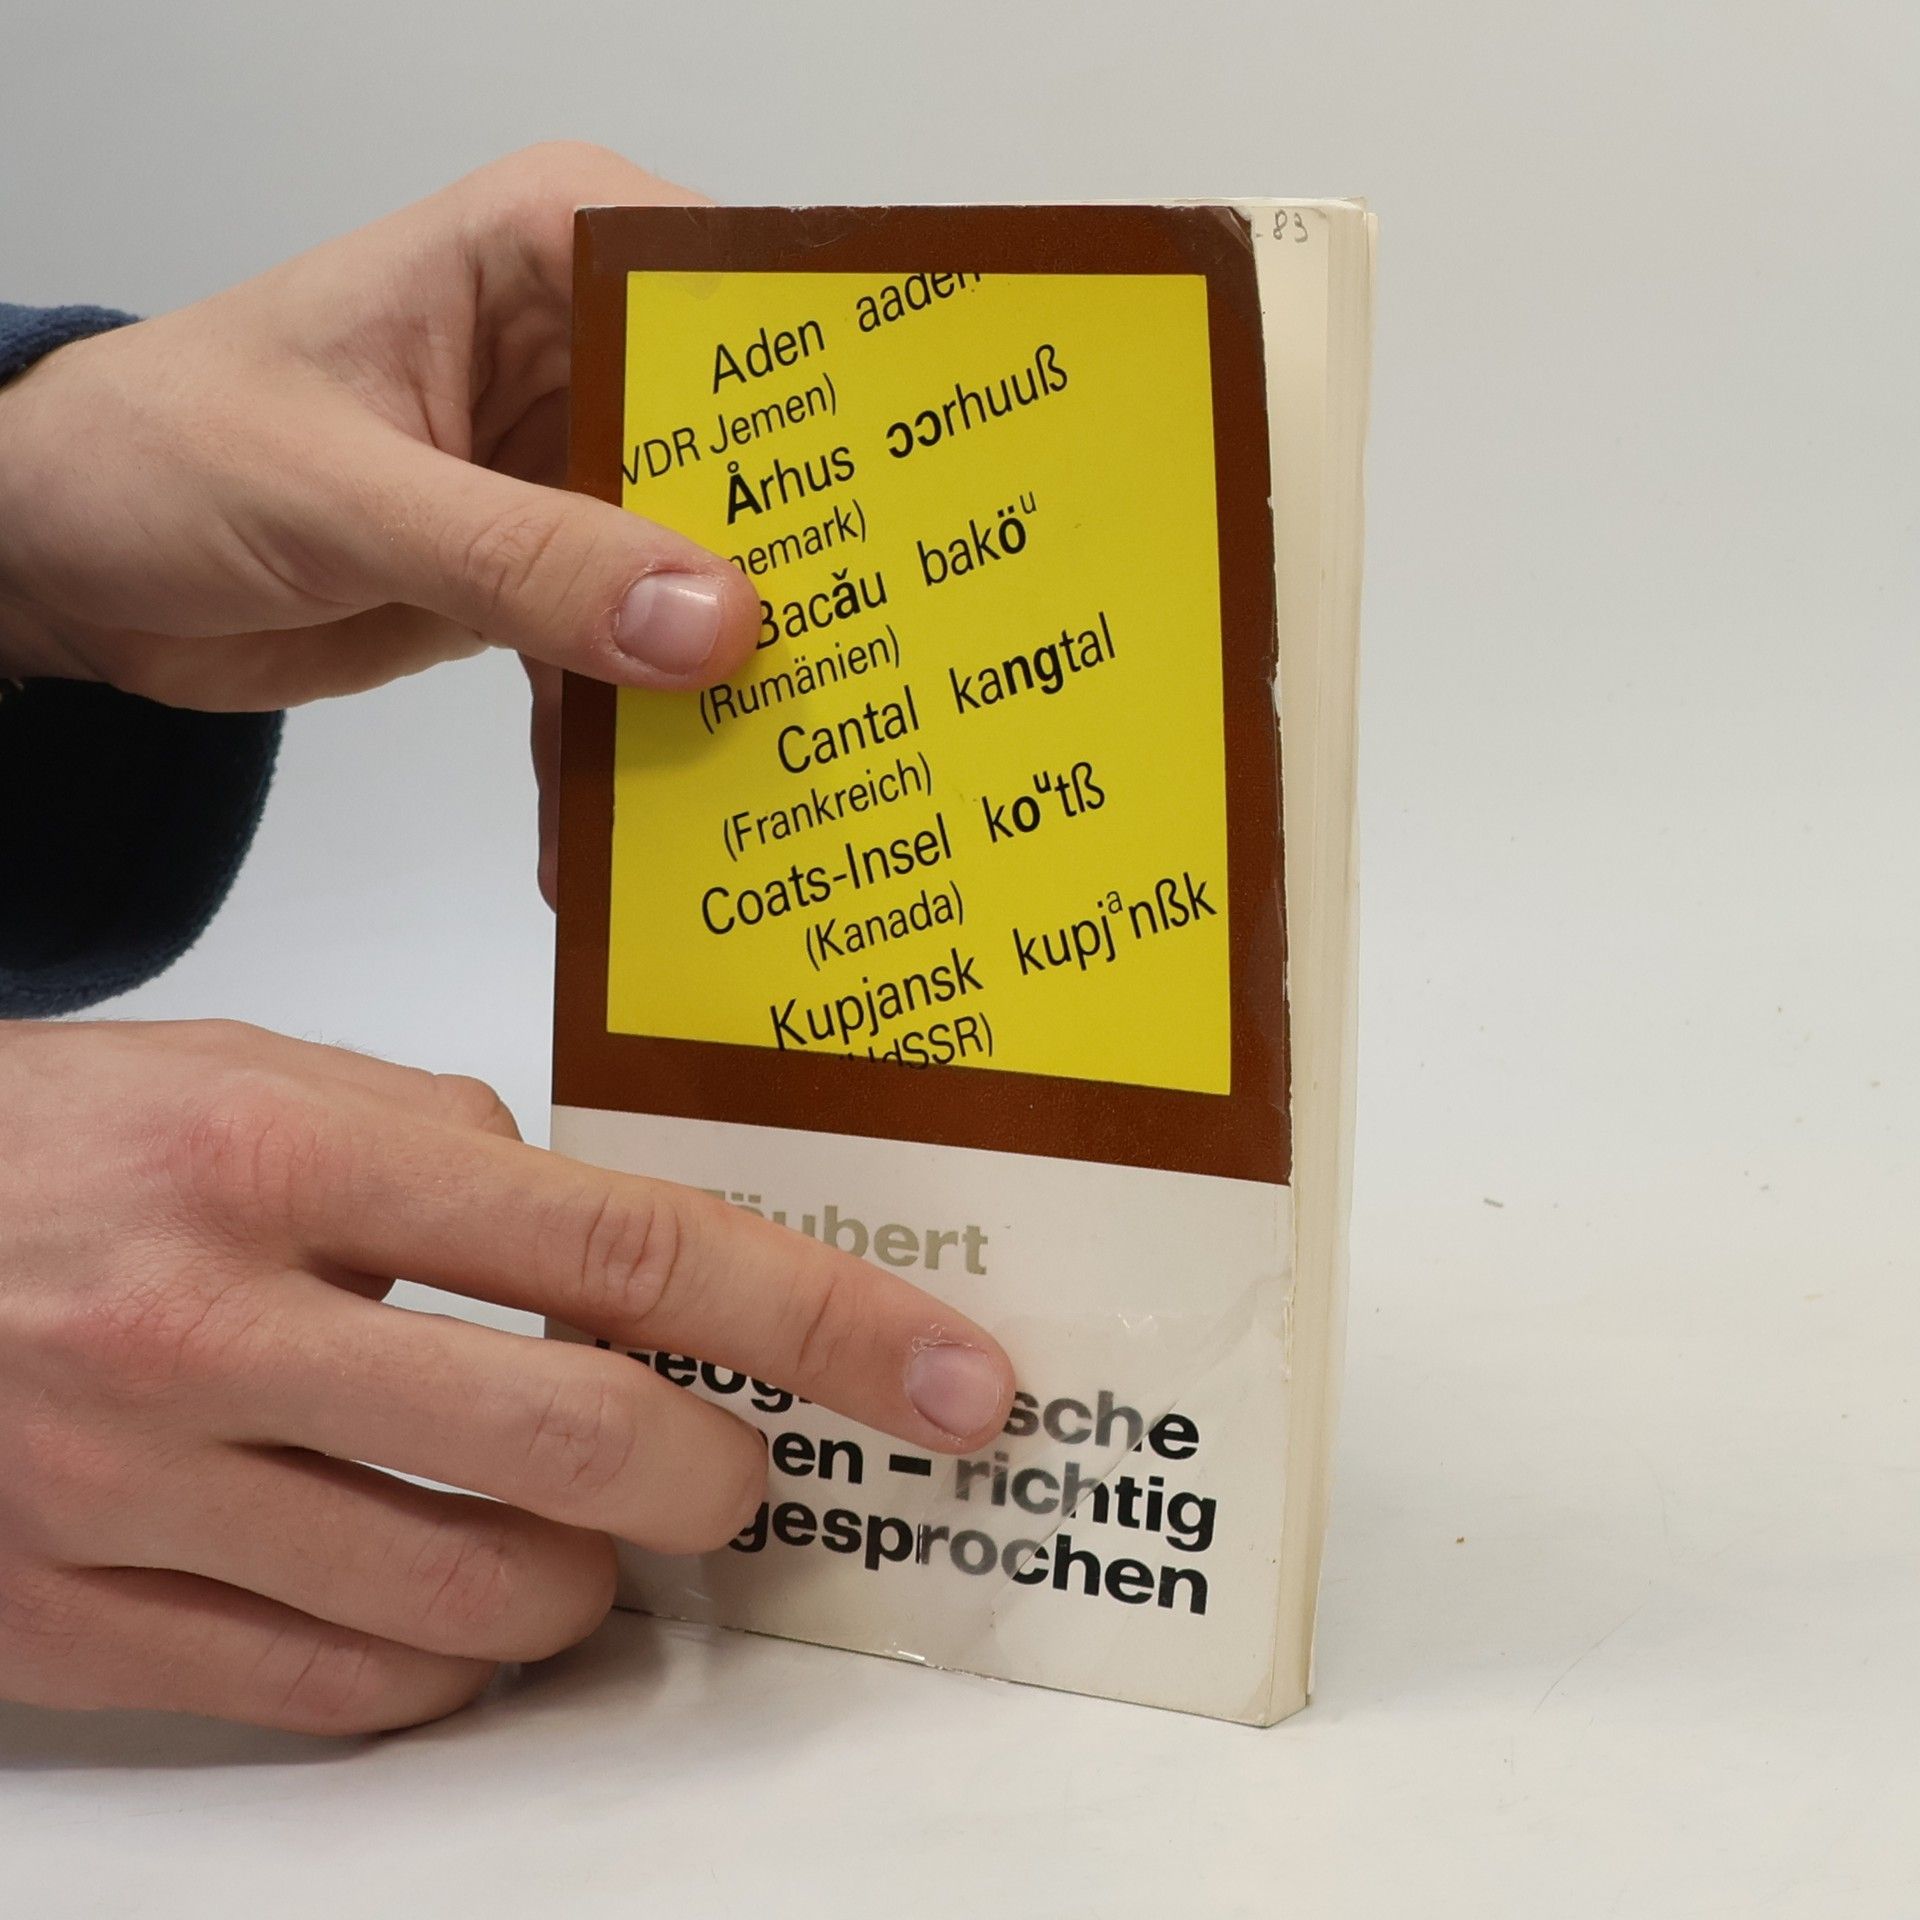 83
Aden aaden
VDR Jemen)
Århus ɔɔrhuuß
nemark)
Bacău baköᵘ
(Rumänien)
Cantal kangtal
(Frankreich)
Coats-Insel koᵘtß
(Kanada)
Kupjansk kupjᵃnßk
UdSSR)
Täubert
Geogr sche
en – richtig
gesprochen